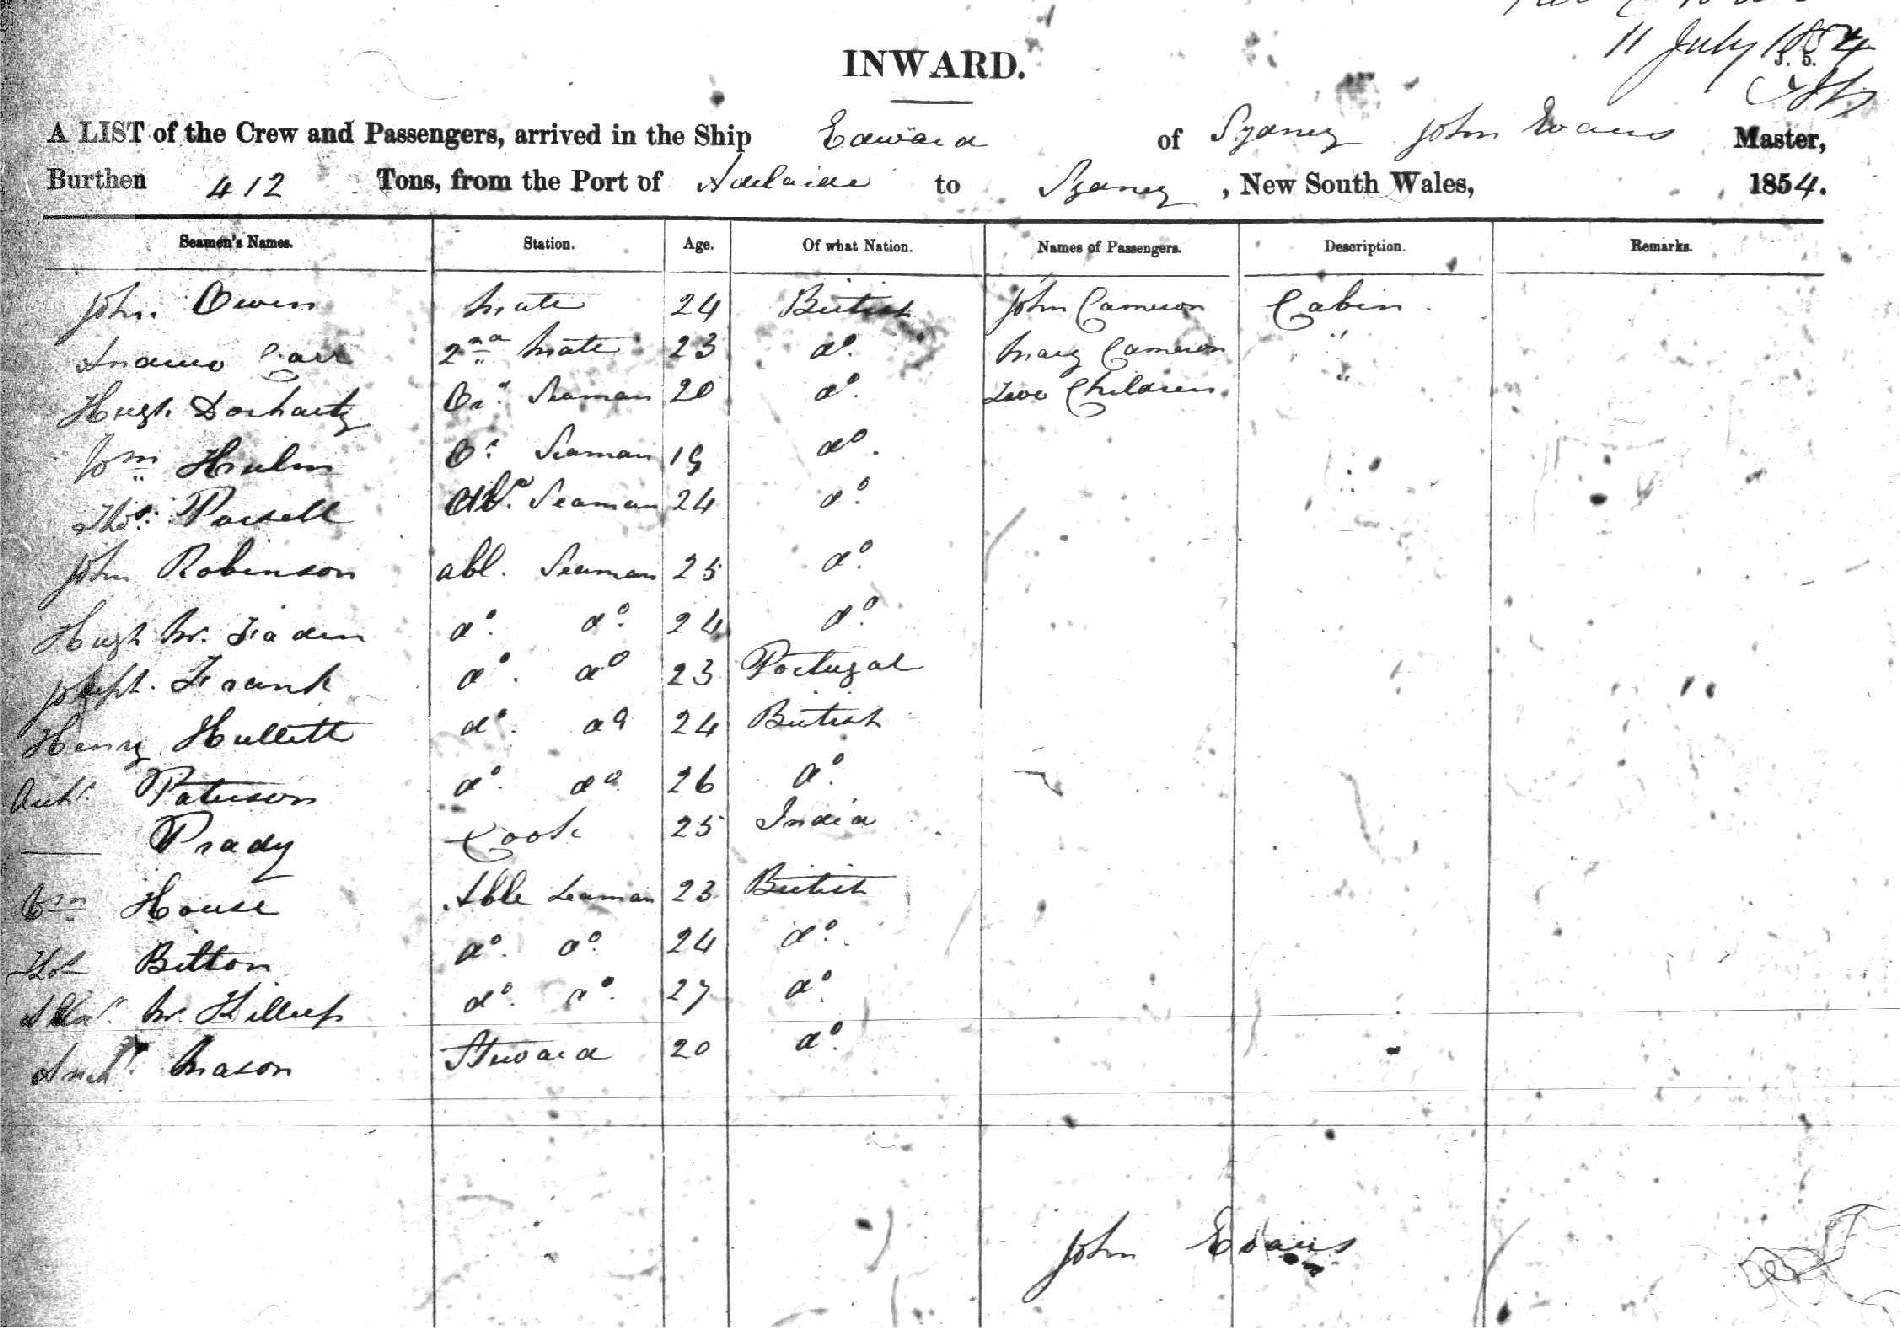 11 July 1854
INWARD.
A LIST of the Crew and Passengers, arrived in the Ship Edward of Sydney John Evans Master,
Burthen 412 Tons, from the Port of Adelaide to Sydney, New South Wales, 1854.
Seamen's Names. Station. Age. Of what Nation. Names of Passengers. Description. Remarks.
John Owen Mate 24 British John Cameron Cabin
Carr 2nd Mate 23 do. Mary Cameron "
Hugh Dorharty Or. Seaman 20 do. Two Children "
Wm Hulm O. Seaman 19 do.
Thos. Parsell Abl. Seaman 24 do.
John Robinson abl. Seaman 25 do.
Hugh Mc. Faden do. do. 24 do.
Joseph. Frank do. do 23 Portugal
Henry Hullett do. do 24 British
Archd. Paterson do. do 26 do.
— Prady Cook 25 India
House Able Seaman 23 British
Bitton do. do. 24 do.
Mc. Killup do. do. 27 do.
Archd. Mason Steward 20 do.
John Evans